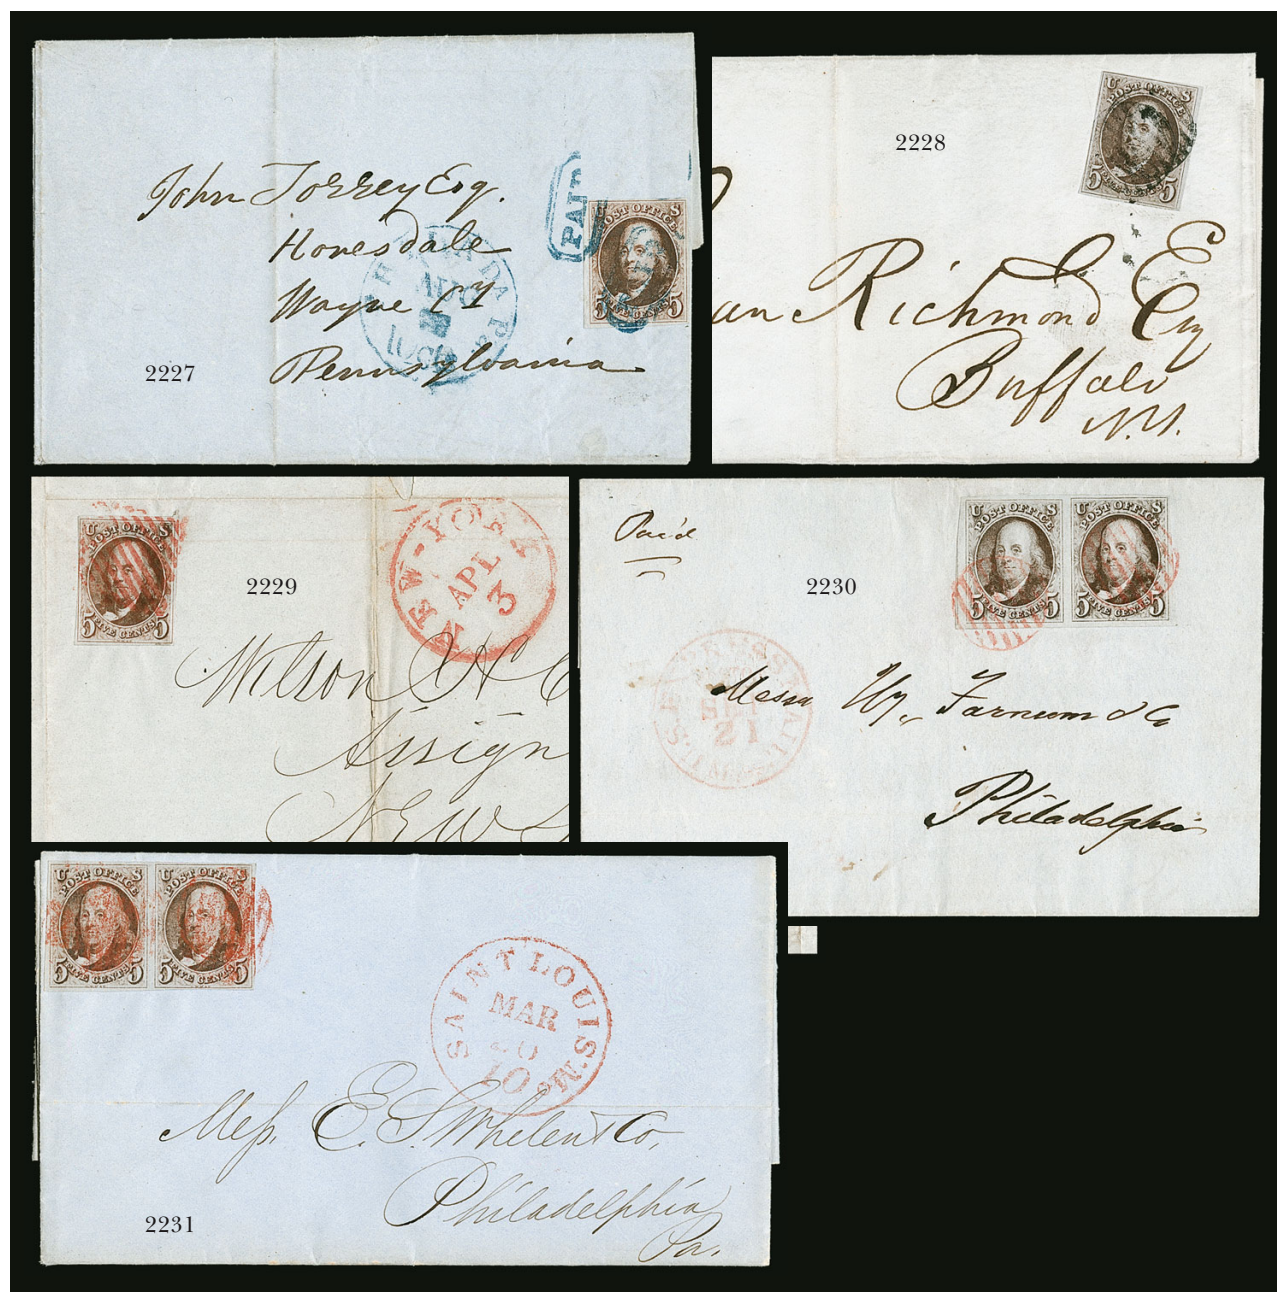 John Torrey Esq.
Honesdale
Wayne Cy
Pennsylvania
PAID
PHILADA Pa
AUG
U POST OFFICE S
5 FIVE CENTS 5
2227
U POST OFFICE S
5 FIVE CENTS 5
2228
an Richmond Esq
Buffalo
N.Y.
U POST OFFICE S
5 FIVE CENTS 5
2229
NEW-YORK
APL
3
Wilson H C
Assign
New
Paid
2230
U POST OFFICE S
5 FIVE CENTS 5
U POST OFFICE S
5 FIVE CENTS 5
U.S. EXPRESS MAIL
SEP
21
Messrs Hy. Farnum & Co
Philadelphia
U POST OFFICE S
5 FIVE CENTS 5
U POST OFFICE S
5 FIVE CENTS 5
SAINT LOUIS Mo.
MAR
10
Mess. E. S. Whelen & Co.
Philadelphia
Pa.
2231